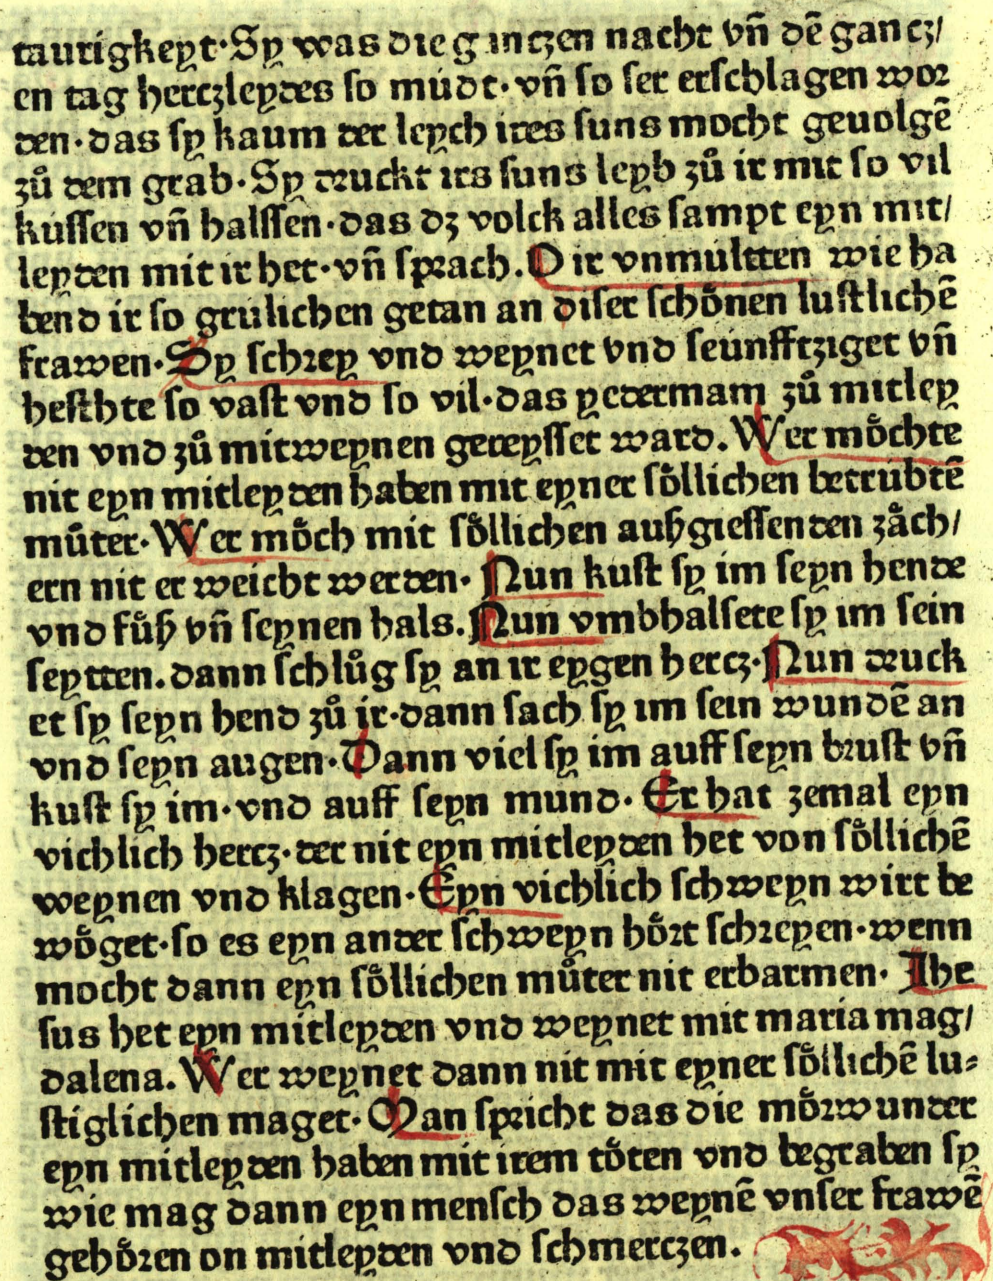 taurigkeyt·Sy was die ganczen nacht vn̄ dē gancz/
en tag herczleydes so müdt·vn̄ so ser erschlagen wor
den·das sy kaum der leych ires suns mocht geuolgē
zů dem grab·Sy druckt irs suns leyb zů ir mit so vil
küssen vn̄ halssen·das dz volck alles sampt eyn mit/
leyden mit ir het·vn̄ sprach.O ir vnmültten wie ha
bend ir so grülichen getan an diser schoͤnen lustlichē
frawen·Sy schrey vnd weynet vnd seünfftziget vn̄
heschte so vast vnd so vil·das yederman zů mitley
den vnd zů mitweynen gereysset ward.Wer moͤchte
nit eyn mitleyden haben mit eyner soͤllichen betrübtē
můter·Wer moͤch mit soͤllichen außgiessenden zaͤch/
ern nit er weicht werden·Nun kust sy im seyn hende
vnd fůß vn̄ seynen hals.Nun vmbhalsete sy im sein
seytten.dann schlůg sy an ir eygen hercz·Nun druck
et sy seyn hend zů ir·dann sach sy im sein wundē an
vnd seyn augen·Dann viel sy im auff seyn brust vn̄
kust sy im·vnd auff seyn mund·Er hat zemal eyn
vichlich hercz·der nit eyn mitleyden het von soͤllichē
weynen vnd klagen·Eyn vichlich schweyn wirt be
woͤget·so es eyn ander schweyn hoͤrt schreyen·wenn
mocht dann eyn soͤllichen můter nit erbarmen·Ihe
sus het eyn mitleyden vnd weynet mit maria mag/
dalena.Wer weynet dann nit mit eyner soͤllichē lu⸗
stiglichen maget·Man spricht das die moͤrwunder
eyn mitleyden haben mit irem toͤten vnd begraben sy
wie mag dann eyn mensch das weynē vnser frawē
gehoͤren on mitleyden vnd schmerczen.